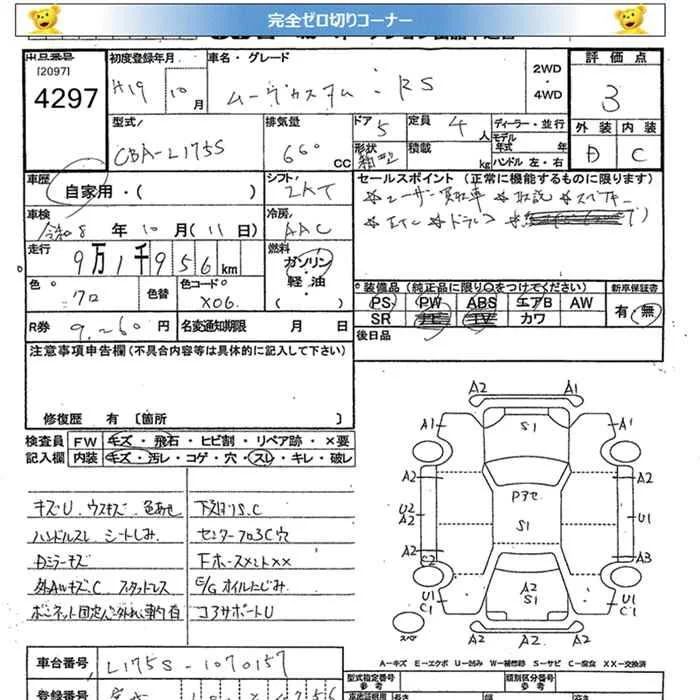 完全ゼロ切りコーナー
出品番号
[2097]
4297
初度登録年月
H19 10月
車名・グレード
ムーヴカスタム:RS
2WD
・
4WD
評価点
3
外装 内装
D C
型式
CBA-L175S
排気量
660
CC
ドア
5
定員
4人
形状
積載
kg
ディーラー・並行
モデル
年式 年
ハンドル 左・右
車歴
自家用・( )
シフト
車検
令和8年10月(11日)
冷房
AAC
走行
9万1千956km
燃料
ガソリン
・
軽油
色
クロ
色替
色コード
X06
R券
9.260円
名変通知期限 月 日
セールスポイント(正常に機能するものに限ります)
☆ユーザー買取車 ☆取説 ☆スペアキー
☆ETC ☆ドラレコ
装備品(純正品に限り○をつけてください)
PS PW ABS エアB AW
SR ナビ TV カワ
新車保証書
有・無
後日品
注意事項申告欄(不具合内容等は具体的に記入して下さい)
修復歴 有〔箇所 〕
検査員 FW キズ・飛石・ヒビ割・リペア跡・×要
記入欄 内装 キズ・汚レ・コゲ・穴・スレ・キレ・破レ
キズU ウスキズ 色あせ
下廻りS.C
ハンドルスレ シートしみ
センターフロアC穴
Dミラーキズ
外AWキズ.C
E/Gオイルにじみ
コアサポートU
A2 A1
A1 S1 A1
A2 A2
Pアセ
U2
A2 S1 U1
A2 A3
C2
A2
S1
U1
C1
U1
C1
A2 A2
スペア
A-キズ E-エクボ U-凹み W-補修跡 S-サビ C-腐食 XX-交換済
車台番号
L175S-1070157
登録番号
型式指定番号
類別区分番号